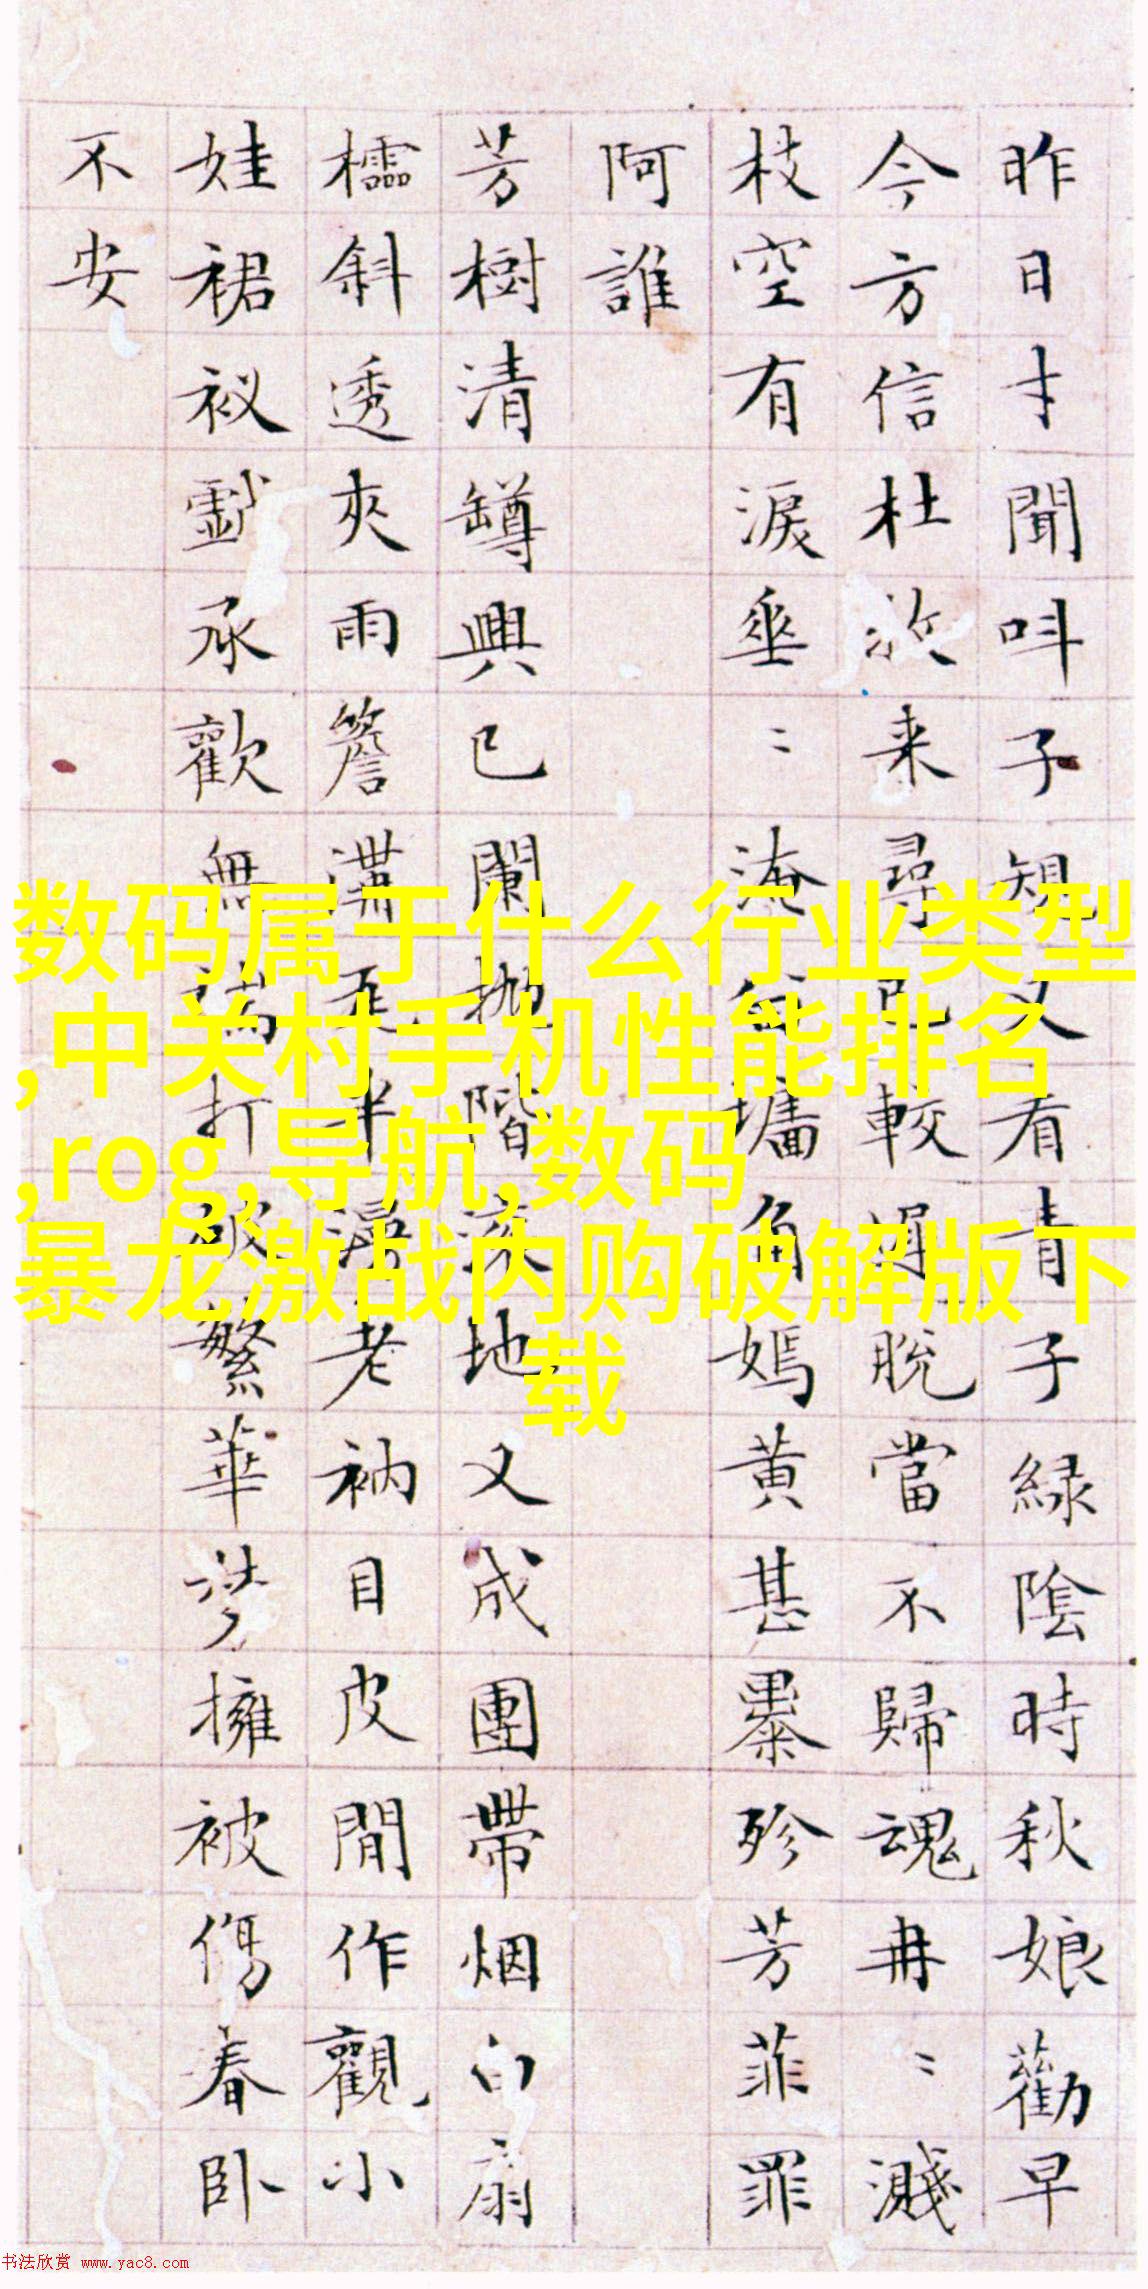 昨日才聞叫子規又看青子綠陰時秋娘勸早
今方信杜 来尋 較 脫當不歸魂冉〻濺
枝空有淚垂〻淹 墉角嫣黄甚 殄芳菲罪
阿誰
芳樹清罇興已闌抛階滚地又成團帶烟白扇
櫺斜透夾雨簷 半 老衲目皮閒作觀小
娃裙衩 承歡無端打破繁華 擁被傷春臥
不安
数码属于什么行业类型
,中关村手机性能排名
,rog,导航,数码
暴龙激战内购破解版下
载
书法欣赏 www.yac8.com